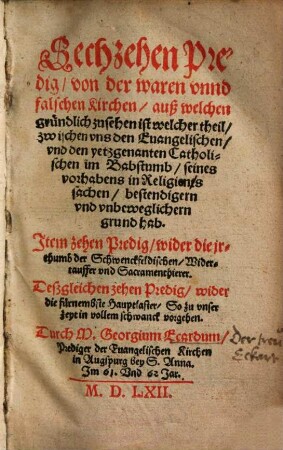 Sechzehen Pre-
dig/ von der waren vnnd
falschen Kirchen/ auß welchen
gründlich zusehen ist welcher theil/
zwischen vns den Euangelischen/
vnd den yetzgenanten Catholi-
schen im Babstumb/ seines
vorhabens in Religions
sachen/ bestendigern
vnd vnbeweglichern
grund hab.
Item zehen Predig/ wider die jr-
thumb der Schwenckfeldischen/ Wider-
tauffer vnd Sacramenthierer.
Deßgleichen zehen Predig/ wider
die fürnembste Hauptlaster/ So zu vnser
zeyt in vollem schwanck vorgehen.
Durch M. Georgium Ecardum/
Prediger der Euangelischen Kirchen
in Augspurg bey S. Anna.
Im 61. Vnd 62 Jar.
M. D. LXII.
Eckart